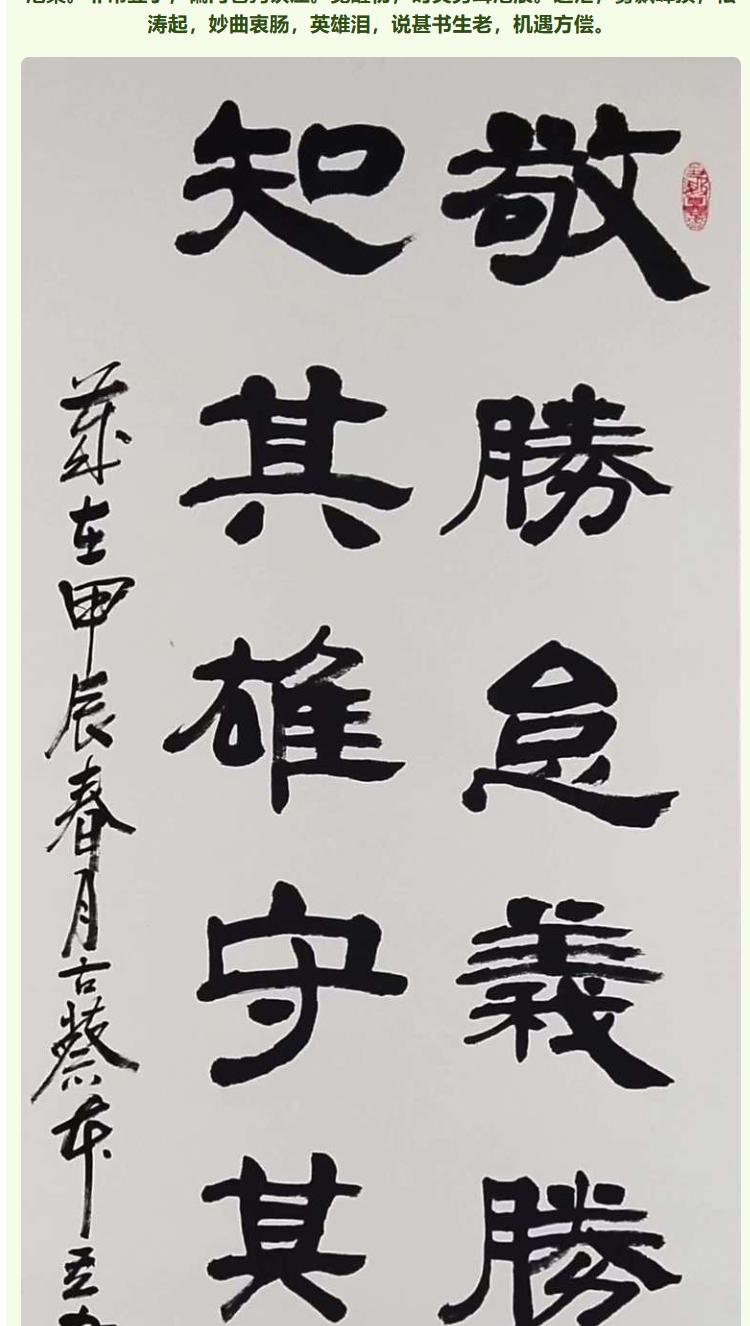 涛起，妙曲衷肠，英雄泪，说甚书生老，机遇方偿。
敬勝怠義勝
知其雄守其
歲在甲辰春月古蔡